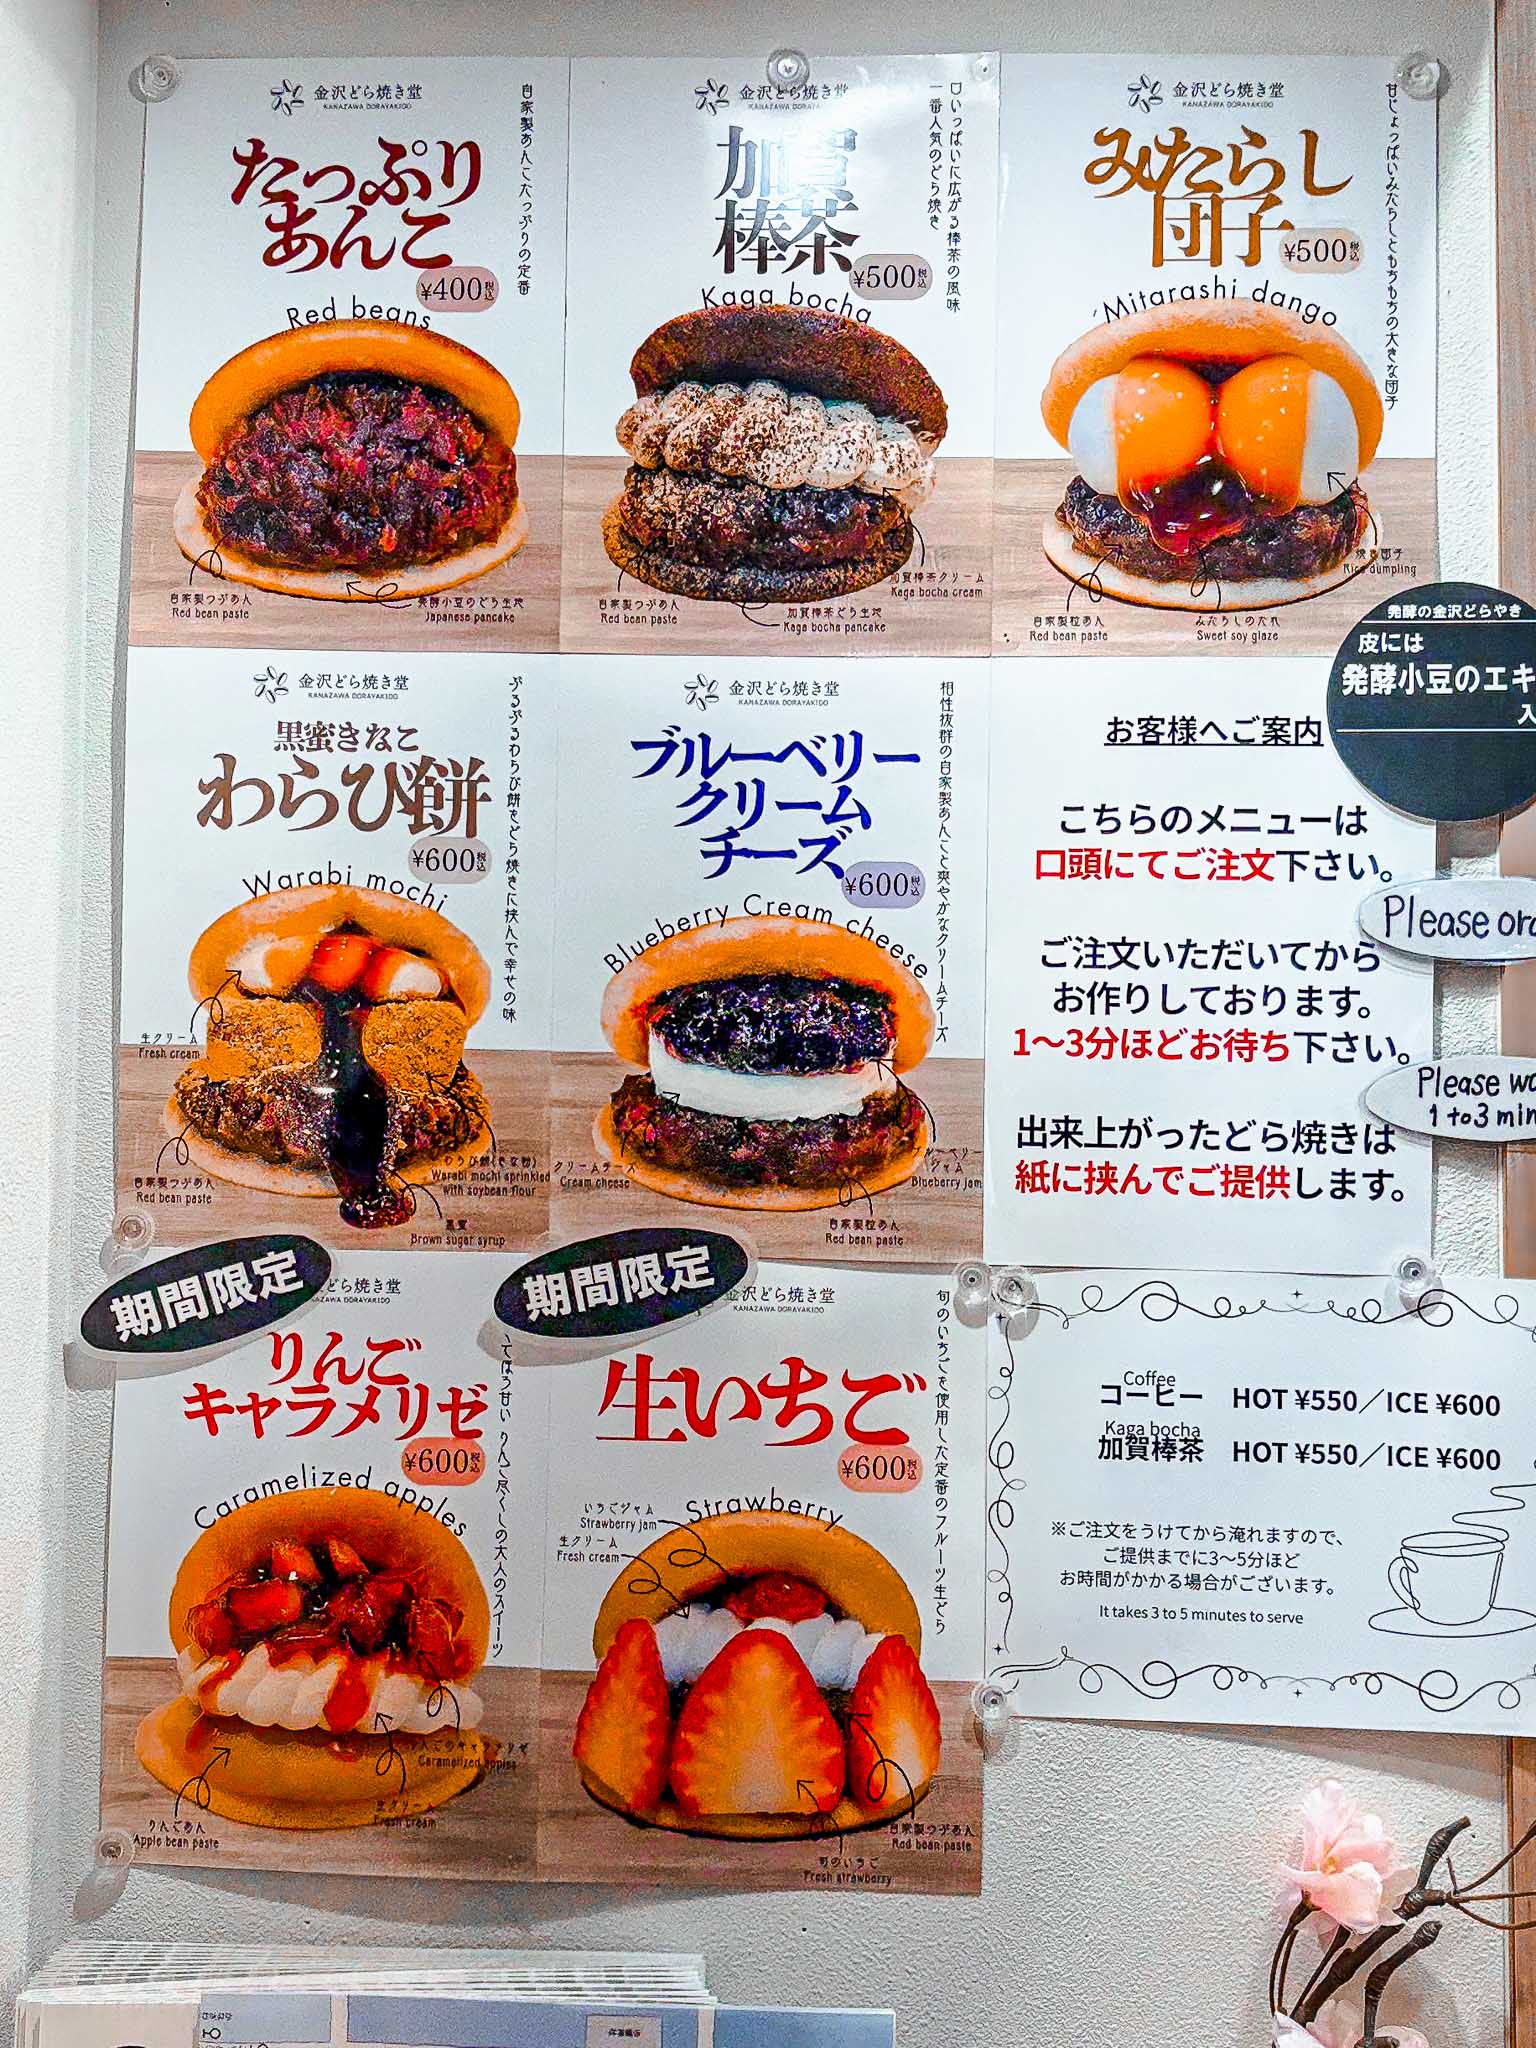 金沢どら焼き堂
KANAZAWA DORAYAKIDO
自家製あんこたっぷりの定番
たっぷり
あんこ
¥400税込
Red beans
自家製つぶあん
Red bean paste
発酵小豆のどら生地
Japanese pancake
金沢どら焼き堂
KANAZAWA DORAYAKIDO
口いっぱいに広がる棒茶の風味
一番人気のどら焼き
加賀
棒茶
¥500税込
Kaga bocha
自家製つぶあん
Red bean paste
加賀棒茶クリーム
Kaga bocha cream
加賀棒茶どら生地
Kaga bocha pancake
金沢どら焼き堂
KANAZAWA DORAYAKIDO
甘じょっぱいみたらしともちもちの大きな団子
みたらし
団子
¥500税込
Mitarashi dango
焼き団子
Rice dumpling
自家製粒あん
Red bean paste
みたらしのたれ
Sweet soy glaze
発酵の金沢どらやき
皮には
発酵小豆のエキ
入
金沢どら焼き堂
KANAZAWA DORAYAKIDO
ぷるぷるわらび餅をどら焼きに挟んで幸せの味
黒蜜きなこ
わらび餅
¥600税込
Warabi mochi
生クリーム
Fresh cream
自家製つぶあん
Red bean paste
わらび餅(きな粉)
Warabi mochi sprinkled
with soybean flour
黒蜜
Brown sugar syrup
金沢どら焼き堂
KANAZAWA DORAYAKIDO
相性抜群の自家製あんこと爽やかなクリームチーズ
ブルーベリー
クリーム
チーズ
¥600税込
Blueberry Cream cheese
クリームチーズ
Cream cheese
ブルーベリー
ジャム
Blueberry jam
自家製粒あん
Red bean paste
お客様へご案内
こちらのメニューは
口頭にてご注文下さい。
Please ord
ご注文いただいてから
お作りしております。
1〜3分ほどお待ち下さい。
Please wa
1 to 3 min
出来上がったどら焼きは
紙に挟んでご提供します。
期間限定
どら焼き堂
AZAWA DORAYAKIDO
てほろ甘い りんご尽くしの大人のスイーツ
りんご
キャラメリゼ
¥600税込
Caramelized apples
りんごのキャラメリゼ
Caramelized apples
生クリーム
Fresh cream
りんごあん
Apple bean paste
期間限定
金沢どら焼き堂
KANAZAWA DORAYAKIDO
旬のいちごを使用した定番のフルーツ生どら
生いちご
¥600税込
Strawberry
いちごジャム
Strawberry jam
生クリーム
Fresh cream
自家製つぶあん
Red bean paste
旬のいちご
Fresh strawberry
Coffee
コーヒー HOT ¥550／ICE ¥600
Kaga bocha
加賀棒茶 HOT ¥550／ICE ¥600
※ご注文をうけてから淹れますので、
ご提供までに3〜5分ほど
お時間がかかる場合がございます。
It takes 3 to 5 minutes to serve